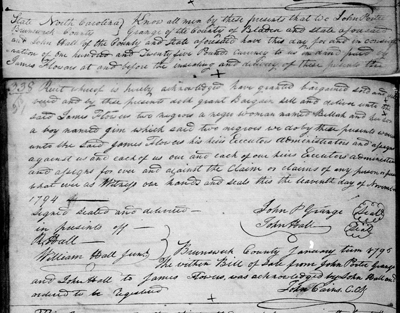 State North Carolina) Know all men by these presents that we John Peter
Brunswick County) Grange of the County of Bladen and State aforesaid
John Hall of the County and State aforesaid have this day for and in consid-
eration of one hundred and Twenty five Pounds Currency to us in hand paid
James Flowers at and before the ensealing and delivery of these presents the
Receipt whereof is hereby acknowledged have granted bargained sold and
and by these presents doth grant Bargain sell and deliver unto the
said James Flowers two negroes a negro woman named Hallah and
a boy named Jim which said two negroes we do by these presents
unto the said James Flowers his heirs Executors Administrators and assigns
against us and each of us our and each of our heirs Executors administrators
and assigns for ever and against the Claim or claims of any person
what ever as Witness our hands and seals this the leventh day of November
1794
Signed sealed and delivered
in presents off
Hall
William Hall Junr
John P Grange (Seal)
John Hall (Seal)
Brunswick County January term 1795
The within Bill of Sale from John Peter Grange
and John Hall to James Flowers, was acknowledged by John Hall and
ordered to be registered
John Cains. C.C.